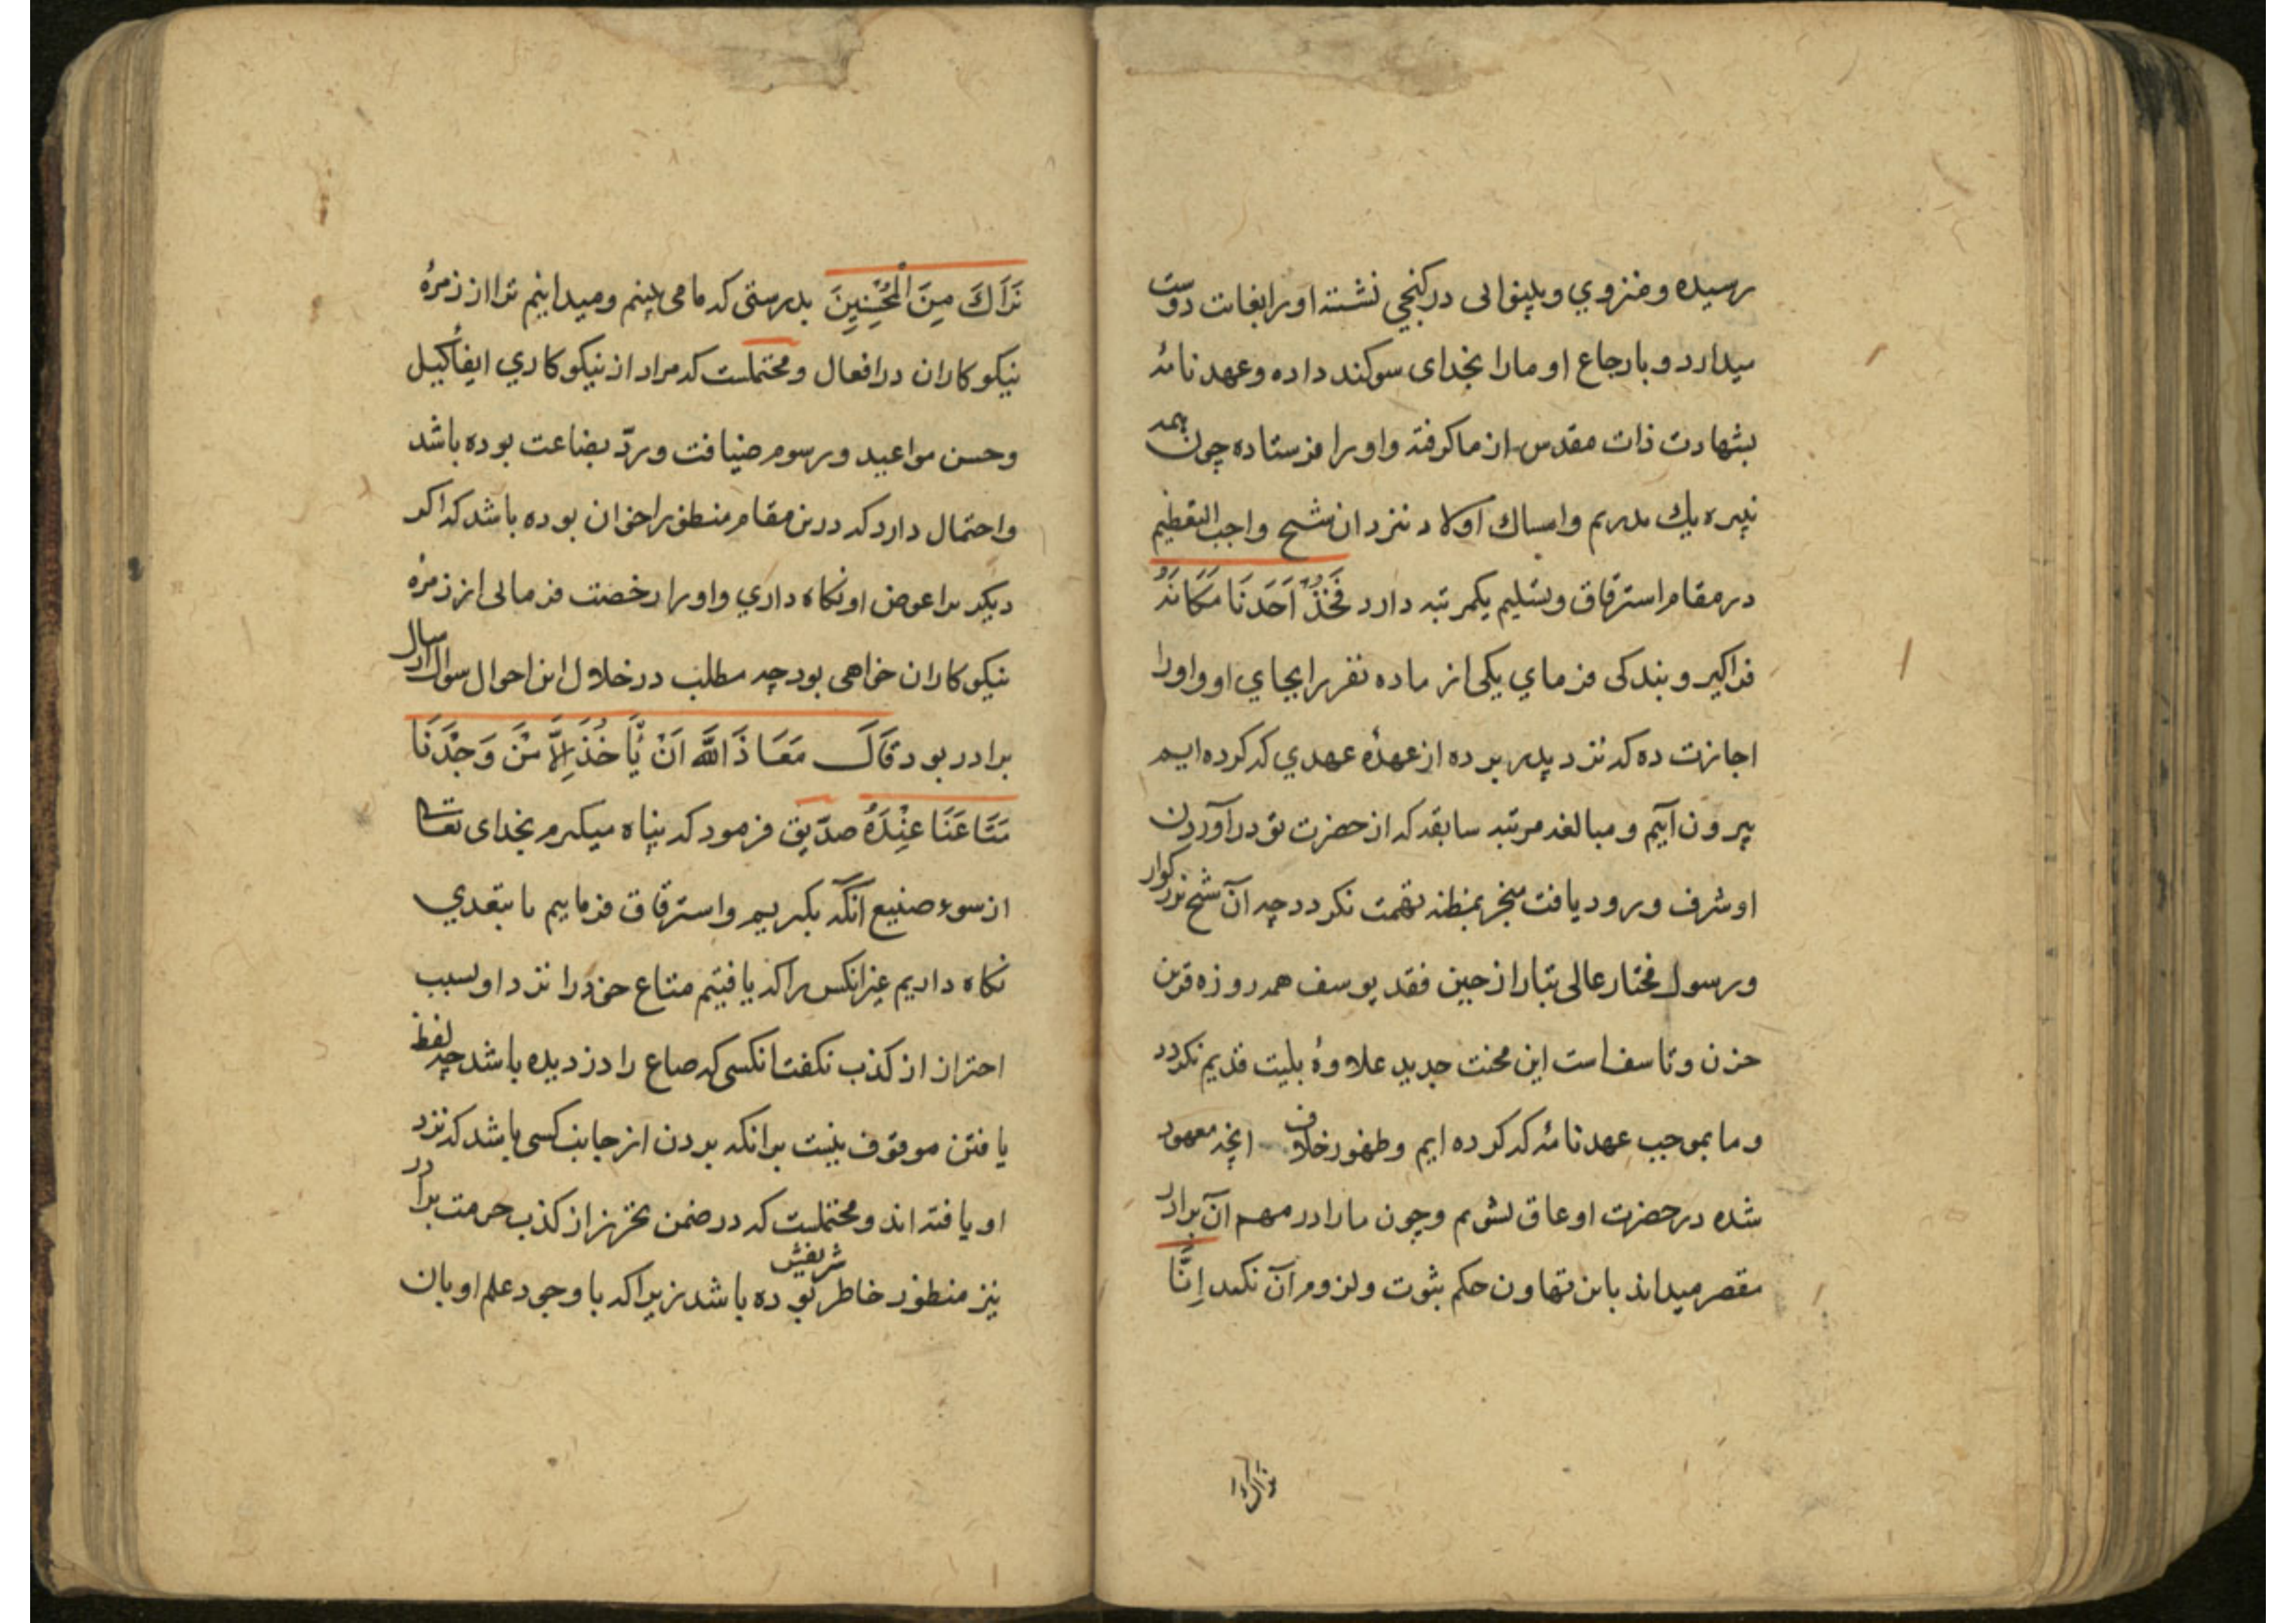 رسیده و منزوی و بینوائی در کنجی نشسته او را بغایت دوست
میدارد و بارجاع او ما را بخدای سوکند داده و عهد نامهٔ
بشهادت ذات مقدس از ما کرفته و او را فرستاده چون همه
نبیره یك پدریم و امساك اولاد نزد ان شیخ واجب التعظیم
در مقام استرقاق و تسلیم یکمرتبه دارد فَخُذْ اَحَدَنَا مَكَانَهُ
فراکیر و بندکی فرمای یکی از ما ده نفر را بجای او و او را
اجازت ده که نزد پدر برده از عهدهٔ عهدی که کرده ایم
بیرون آییم و مبالغه مرتبه سابقه که از حضرت تو در آوردن
او شرف ورود یافت منجر بمظنه تهمت نکردد چه آن شیخ بزرکوار
و رسول مختار عالی تبار از حین فقد یوسف همه روزه قرین
حزن و تاسف است این محنت جدید علاوهٔ بلیت قدیم نکردد
و ما بموجب عهد نامهٔ که کرده ایم و ظهور خلاف انچه معهود
شده در حضرت او عاق نشویم و چون ما را در مهم آن برادر
مقصر میداند باین تهاون حکم بثبوت و لزوم آن نکند اِنَّا
نَرَاكَ مِنَ الْمُحْسِنِينَ بدرستی که ما می بینیم و میدانیم ترا از زمرهٔ
نیکوکاران در افعال و محتملست که مراد از نیکوکاری ایفا کیل
و حسن مواعید و رسوم ضیافت و ردّ بضاعت بوده باشد
و احتمال دارد که درین مقام منظور اخوان بوده باشد که اکر
دیکر برا عوض او نکاه داری و او را رخصت فرمائی از زمرهٔ
نیکوکاران خواهی بود چه مطلب در خلال این احوال سوال ارسال
برادر بود قَالَ مَعَاذَ اللَّهِ اَنْ نَأْخُذَ اِلَّا مَنْ وَجَدْنَا
مَتَاعَنَا عِنْدَهُ صدّیق فرمود که پناه میکیرم بخدای تعالی
از سوء صنیع آنکه بکیریم و استرقاق فرماییم یا بتعدی
نکاه داریم غیر انکس را که یافتیم متاع خود را نزد او بسبب
احتراز از کذب نکفت انکسی که صاع را دزدیده باشد چه لفظ
یافتن موقوف نیست برانکه بردن از جانب کسی باشد که نزد
او یافته اند و محتملست که در ضمن تحرز از کذب حرمت برادر
نیز منظور خاطر شریفش بوده باشد زیرا که با وجود علم او بان